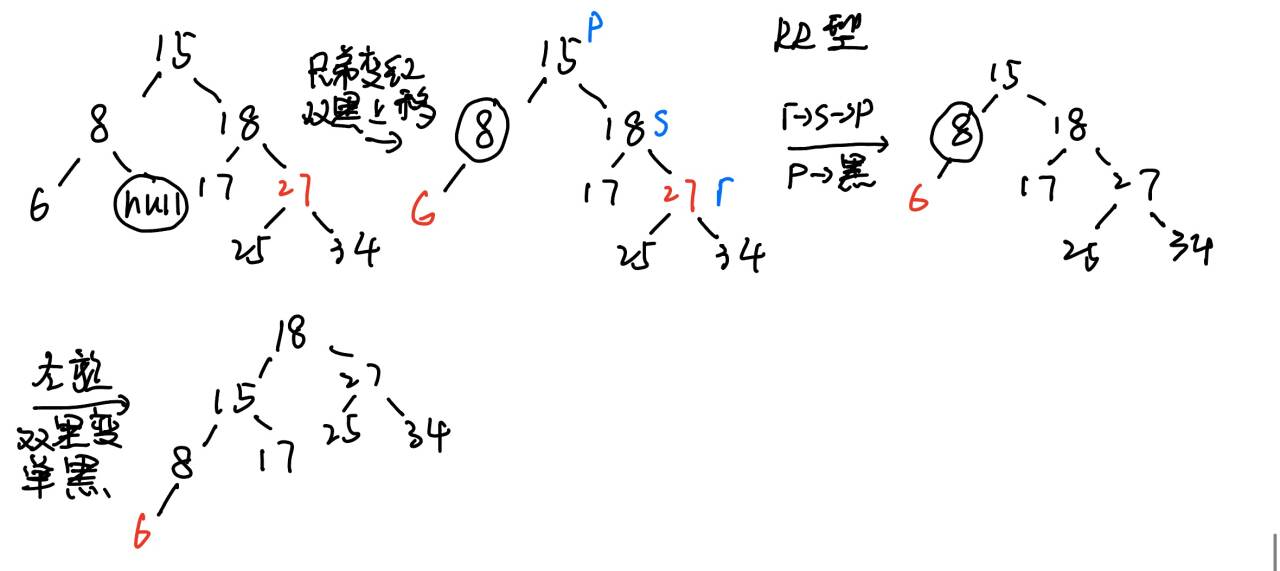 15
8 18
6 null 17 27
25 34
兄弟变红
双黑上移
15 P
8 18 S
6 17 27 r
25 34
RR型
r→s→P
P→黑
15
8 18
6 17 27
25 34
左旋
双黑变
单黑
18
15 27
8 17 25 34
6